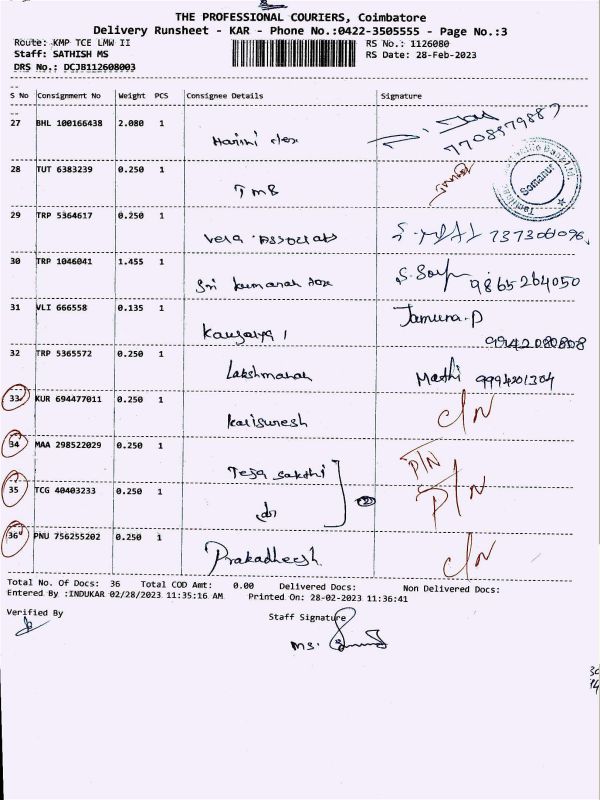 THE PROFESSIONAL COURIERS, Coimbatore
Delivery Runsheet - KAR - Phone No.:0422-3505555 - Page No.:3
Route: KMP TCE LMW II RS No.: 1126080
Staff: SATHISH MS RS Date: 28-Feb-2023
DRS No.: DCJB112608003
S No Consignment No Weight PCS Consignee Details Signature
27 BHL 100166438 2.080 1 Harini tex
28 TUT 6383239 0.250 1 TMB
Somanur
29 TRP 5364617 0.250 1 vera Associats
30 TRP 1046041 1.455 1 Sri kumaran tex 9865264050
31 VLI 666558 0.135 1 Kausalya 1 Jamuna.P 9942080808
32 TRP 5365572 0.250 1 Lakshmanan Mathi 9994201304
33 KUR 694477011 0.250 1 karisuresh C/N
34 MAA 298522029 0.250 1 Teja sakthi P/N
35 TCG 40403233 0.250 1 do 2 P/N
36 PNU 756255202 0.250 1 Prakadheesh C/N
Total No. Of Docs: 36 Total COD Amt: 0.00 Delivered Docs: Non Delivered Docs:
Entered By :INDUKAR 02/28/2023 11:35:16 AM Printed On: 28-02-2023 11:36:41
Verified By Staff Signature
MS.